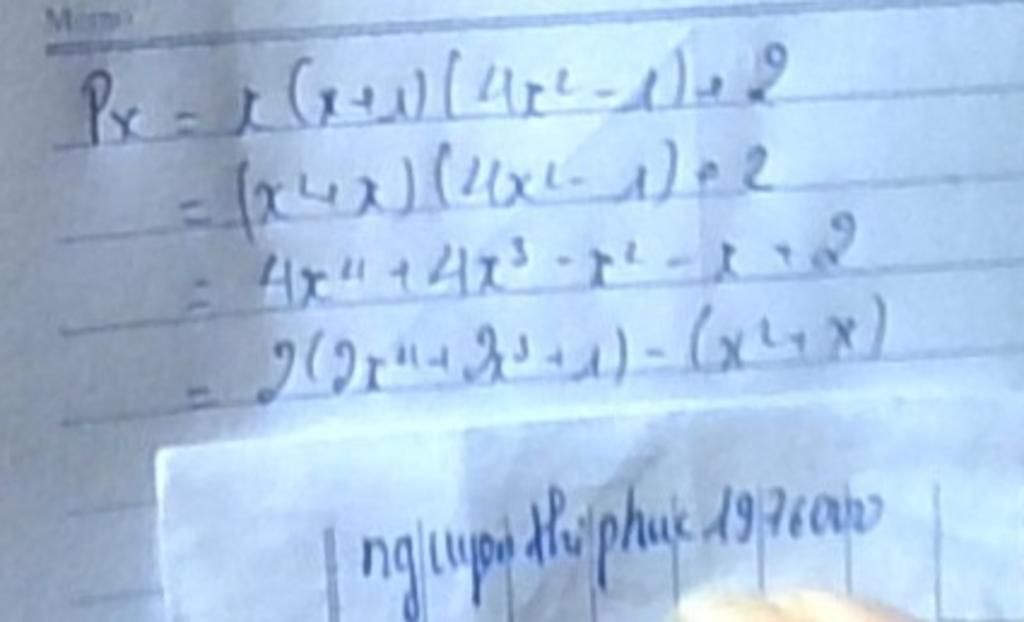 Memo
Px = x(x+1)(4x² - 1) + 2
= (x²+x)(4x² - 1) + 2
= 4x⁴ + 4x³ - x² - x + 2
= 2(2x⁴ + 2x³ + 1) - (x² + x)
nguyen thi phuc